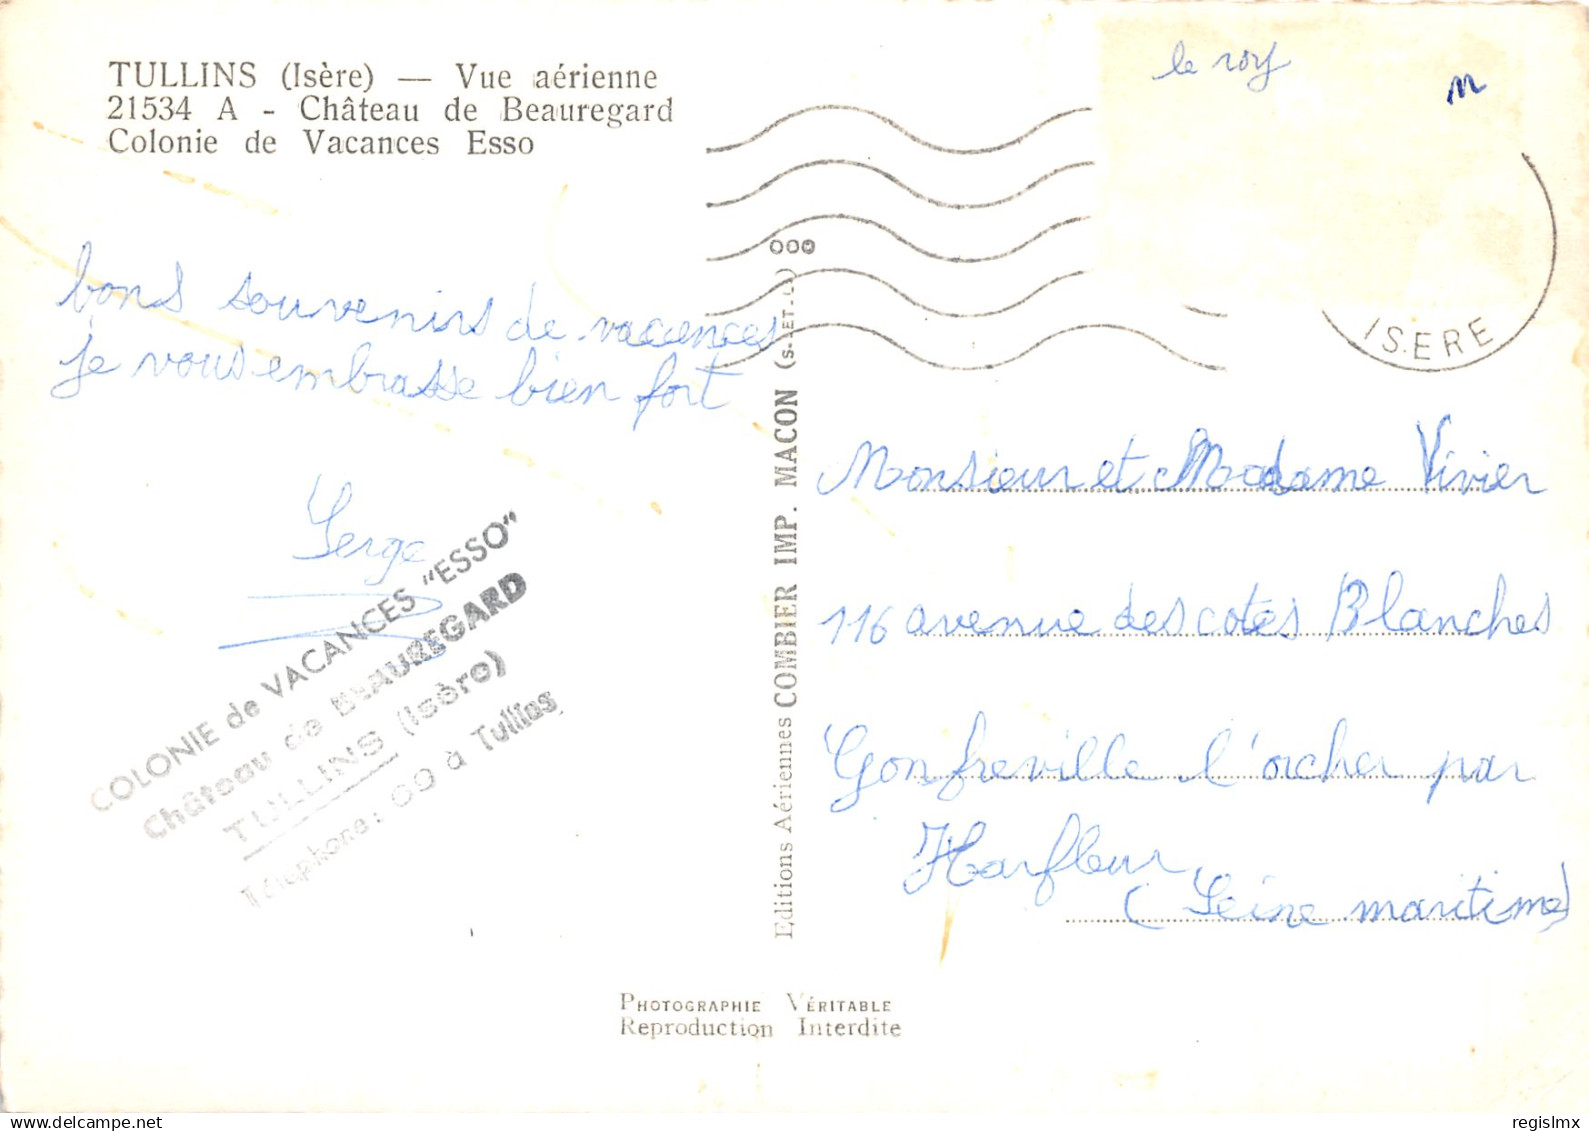 TULLINS (Isère) — Vue aérienne
21534 A - Château de Beauregard
Colonie de Vacances Esso
le roy
ISERE
bons souvenirs de vacances
je vous embrasse bien fort
Serge
COLONIE de VACANCES "ESSO"
Château de BEAUREGARD
TULLINS (Isère)
Téléphone: 69 à Tullins
Editions Aériennes COMBIER IMP. MACON (S.-ET-L.)
Monsieur et Madame Vivier
116 avenue des cotes Blanches
Gonfreville l'orcher par
Harfleur
(Seine maritime)
PHOTOGRAPHIE VÉRITABLE
Reproduction Interdite
delcampe.net
regislmx